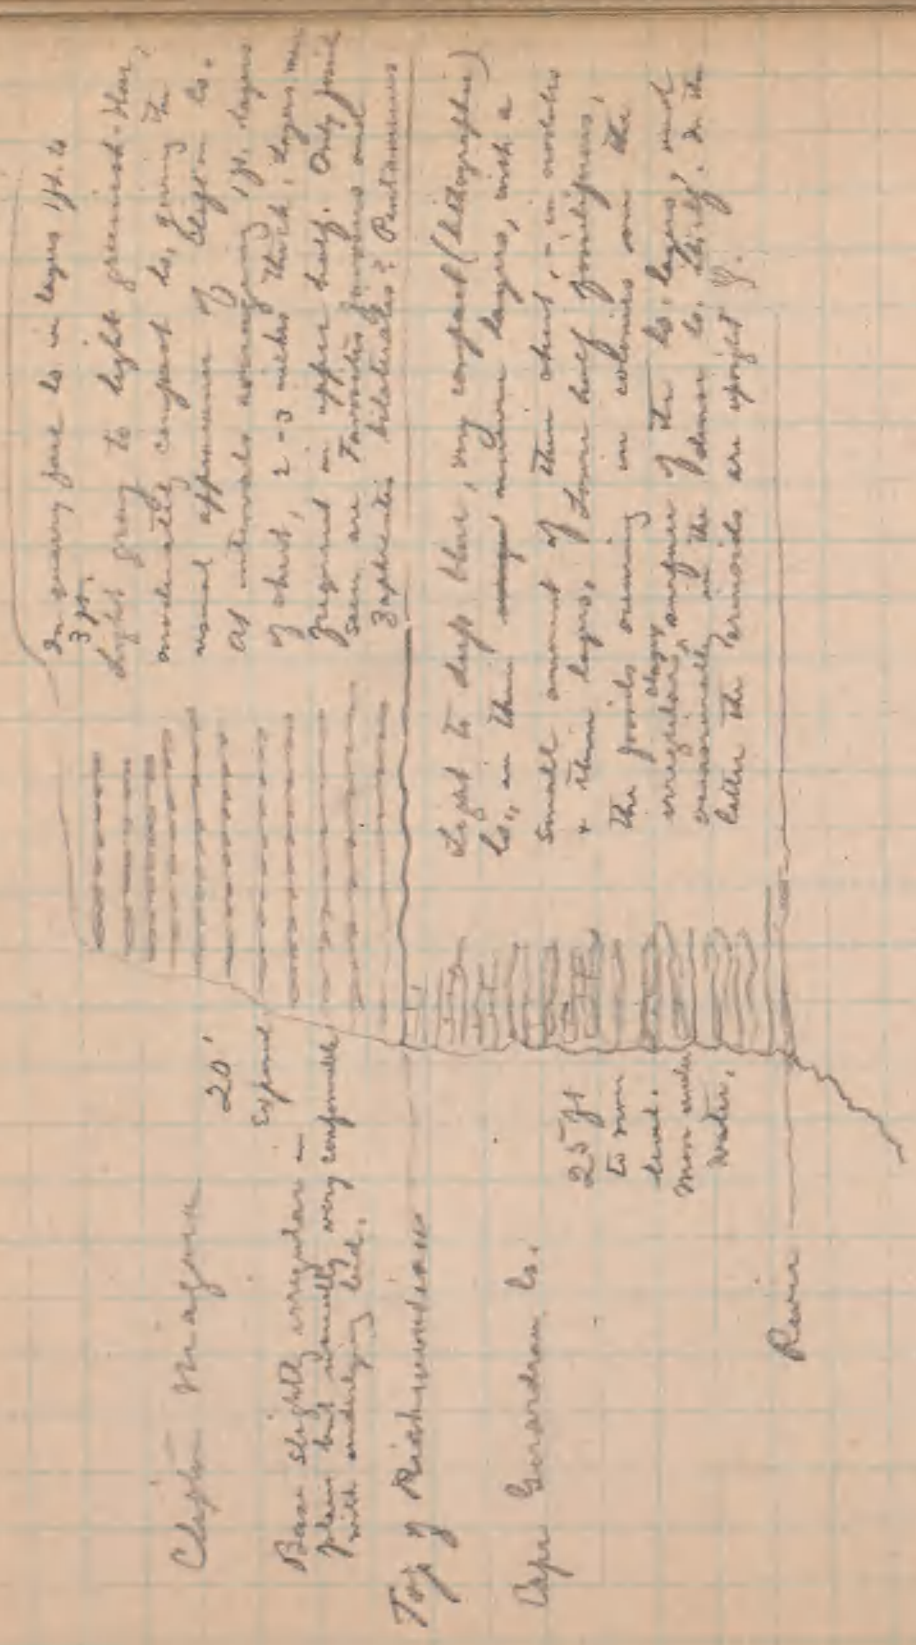 Clayton Niagara
20'
exposed
Base slightly irregular in
places but usually very conformable
with underlying bed.
Top of Richmondian
Cape Girardeau ls.
25 ft
to river
level.
More under
water,
River
In quarry face ls in layers 1 ft. to
3 ft.
Light gray to light greenish-blue,
moderately compact ls, giving the
usual appearance of Clayton ls.
At intervals averaging 1 ft. layers
of chert, 2-3 inches thick, layers more
frequent in upper half. Only fossils
seen are Favosites favosus and
Zaphrentis bilateralis? Pentamerus
Light to deep blue, very compact (lithographic)
ls., in thin medium layers, with a
small amount of thin chert, in nodules
+ thin layers, Lower half fossiliferous,
the fossils occurring in colonies on the
irregular surface of the ls. layers and
occasionally in the denser ls. itself. In the
latter the crinoids are upright